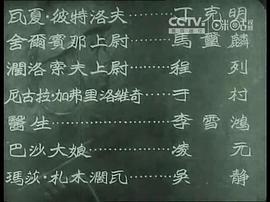 CCTV
瓦夏·彼特洛夫……丁克明
舍爾賓那上尉……馬璽麟
潤洛索夫上尉……程列
尼古拉·加弗里洛維奇……于村
醫生……李雪鴻
巴沙大娘……凌元
瑪莎·札木潤瓦……吳静